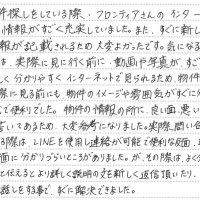 件探しをしている際、フロンティアさんのインター
情報がすごく充実していました。また、すぐに新し
報が記載されるため大変よかったです。気になる
は、実際に見に行く前に、動画や写真が、すご
く分かりやすくインターネットで見られるため、物件
際に見る前にも、物件のイメージや雰囲気がすぐに分
て便利でした。物件の情報の所に、良い面、悪い
書いてあるため、大変参考になりました。実際、問い合
る際は、LINEを使用し連絡が可能で便利な反面、
面に分かりづらいところがありました。が、その際は、よく分
と伝えるとより詳しく説明の文を新しく返信頂いたり、
話しをする事で、すぐに解決できました。